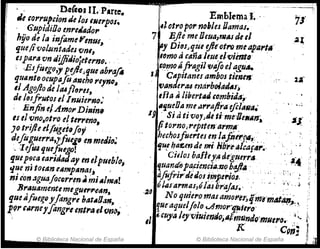 Deseos II. Parte,
de corrupcion de los cuerpos.
Cupidillo enredador
hijo de la infame Venus,
que si voluntades vne,
es para vn dissidio eterno.
Es fuego, y peste, que abrasa
quanto ocupa su ancho reyno,
el Agosto de las flores,
de los frutos el Inuierno.
En fin el Amor Diuino
es el vno, otro el terreno,
yo triste el sugeto soy
de su guerra, y fuego en medio.
Iesus que fuego!
que poca caridad ay en el pueblo,
que ni tocan campanas,
ni con agua socorren à mi alma!
Brauamente me guerrean,
que à fuego y sangre batallan,
por carne y sangre entra el vno,
el
Emblema I.
75
el otro por nobles llamas.
7
Este me lleua, mas de el
21
ay Dios, que este otro me aparta
como à caña leue el viento
como à fragil vaso el agua.
Capitanes ambos tienen
22
vanderas enarboladas,
esta à libertad combida,
aquella me arrastra esclaua.
Si à ti voy, de ti me lleuan,
19
si torno, repiten arma
hechos fuertes en la fuerça,
que hazen de mi libre alcaçar.
Cielos baste ya de guerra
24
quando paciencia no basta
à sufrir de dos imperios
ò las armas, ò las brasas.
20
No quiero mas amores, que me matan,
que aquel solo Amor quiero
à cuya ley viuiendo, al mundo muero.
K
Con